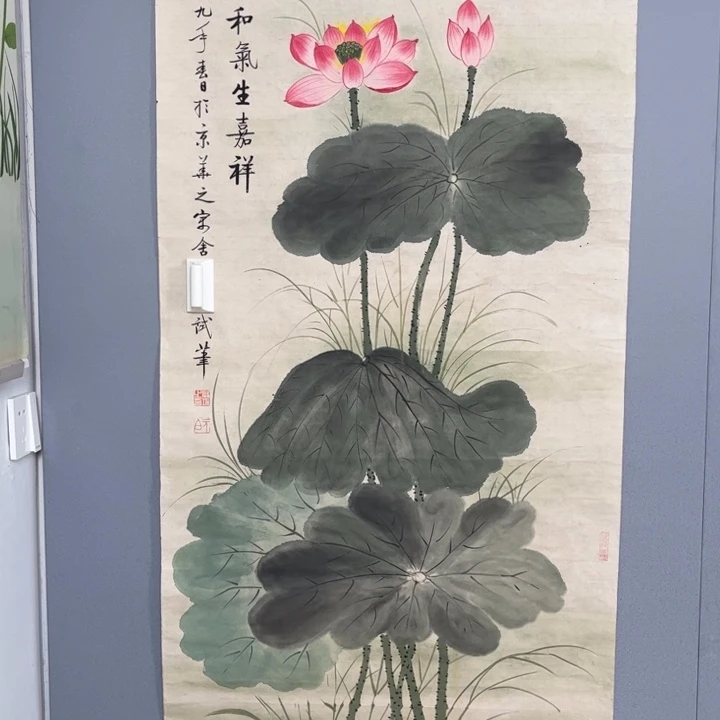 和氣生嘉祥
九年春日於京華之寓舍
試筆